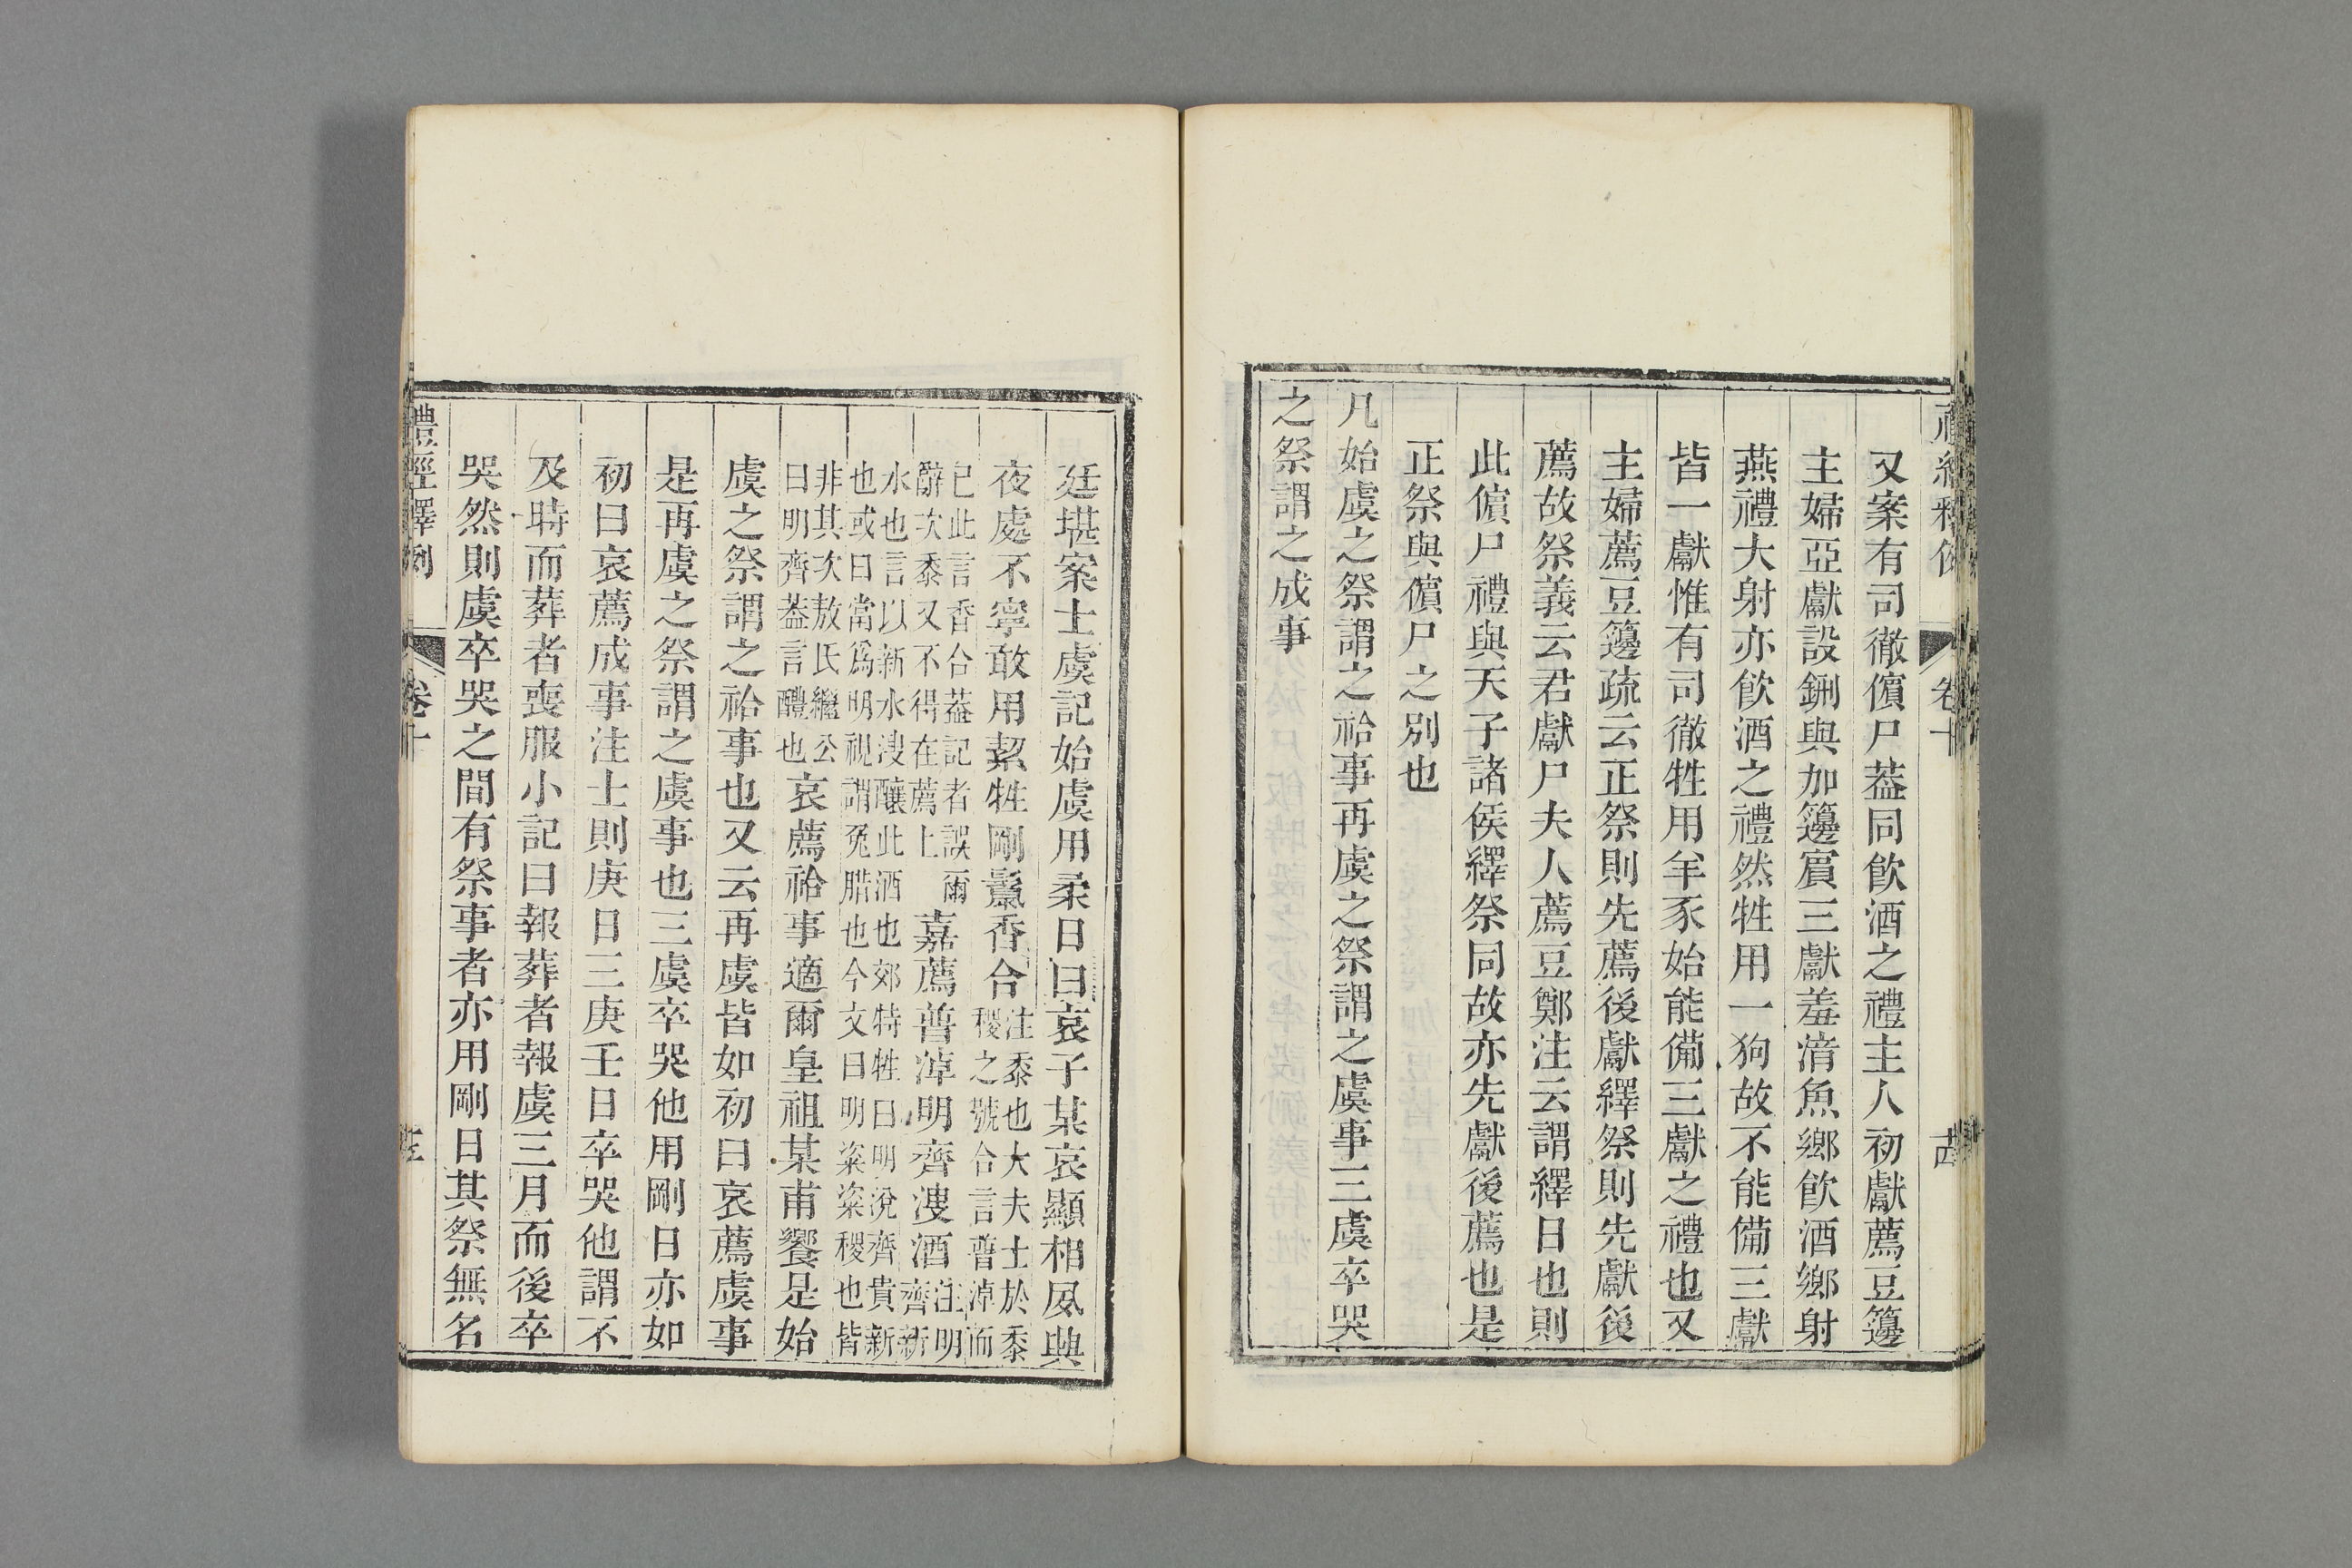 禮經釋例
卷十
十四
又案有司徹儐尸葢同飮酒之禮主人初獻薦豆籩
主婦亞獻設鉶與加籩賓三獻羞湇魚鄉飮酒鄉射
燕禮大射亦飮酒之禮然牲用一狗故不能備三獻
皆一獻惟有司徹牲用羊豕始能備三獻之禮也又
主婦薦豆籩疏云正祭則先薦後獻繹祭則先獻後
薦故祭義云君獻尸夫人薦豆鄭注云謂繹日也則
此儐尸禮與天子諸侯繹祭同故亦先獻後薦也是
正祭與儐尸之別也
凡始虞之祭謂之祫事再虞之祭謂之虞事三虞卒哭
之祭謂之成事
廷堪案士虞記始虞用柔日曰哀子某哀顯相夙興
夜處不寧敢用絜牲剛鬣香合注黍也大夫士於黍
稷之號合言普淖而
已此言香合葢記者誤爾
辭次黍又不得在薦上嘉薦普淖明齊溲酒注明
齊新
水也言以新水溲釀此酒也郊特牲曰明涗齊貴新
也或曰當爲明視謂兔腊也今文曰明粢粢稷也皆
非其次敖氏繼公
曰明齊葢言醴也哀薦祫事適爾皇祖某甫饗是始
虞之祭謂之祫事也又云再虞皆如初曰哀薦虞事
是再虞之祭謂之虞事也三虞卒哭他用剛日亦如
初曰哀薦成事注士則庚日三虞壬日卒哭他謂不
及時而葬者喪服小記曰報葬者報虞三月而後卒
哭然則虞卒哭之間有祭事者亦用剛日其祭無名
禮經釋例
卷十